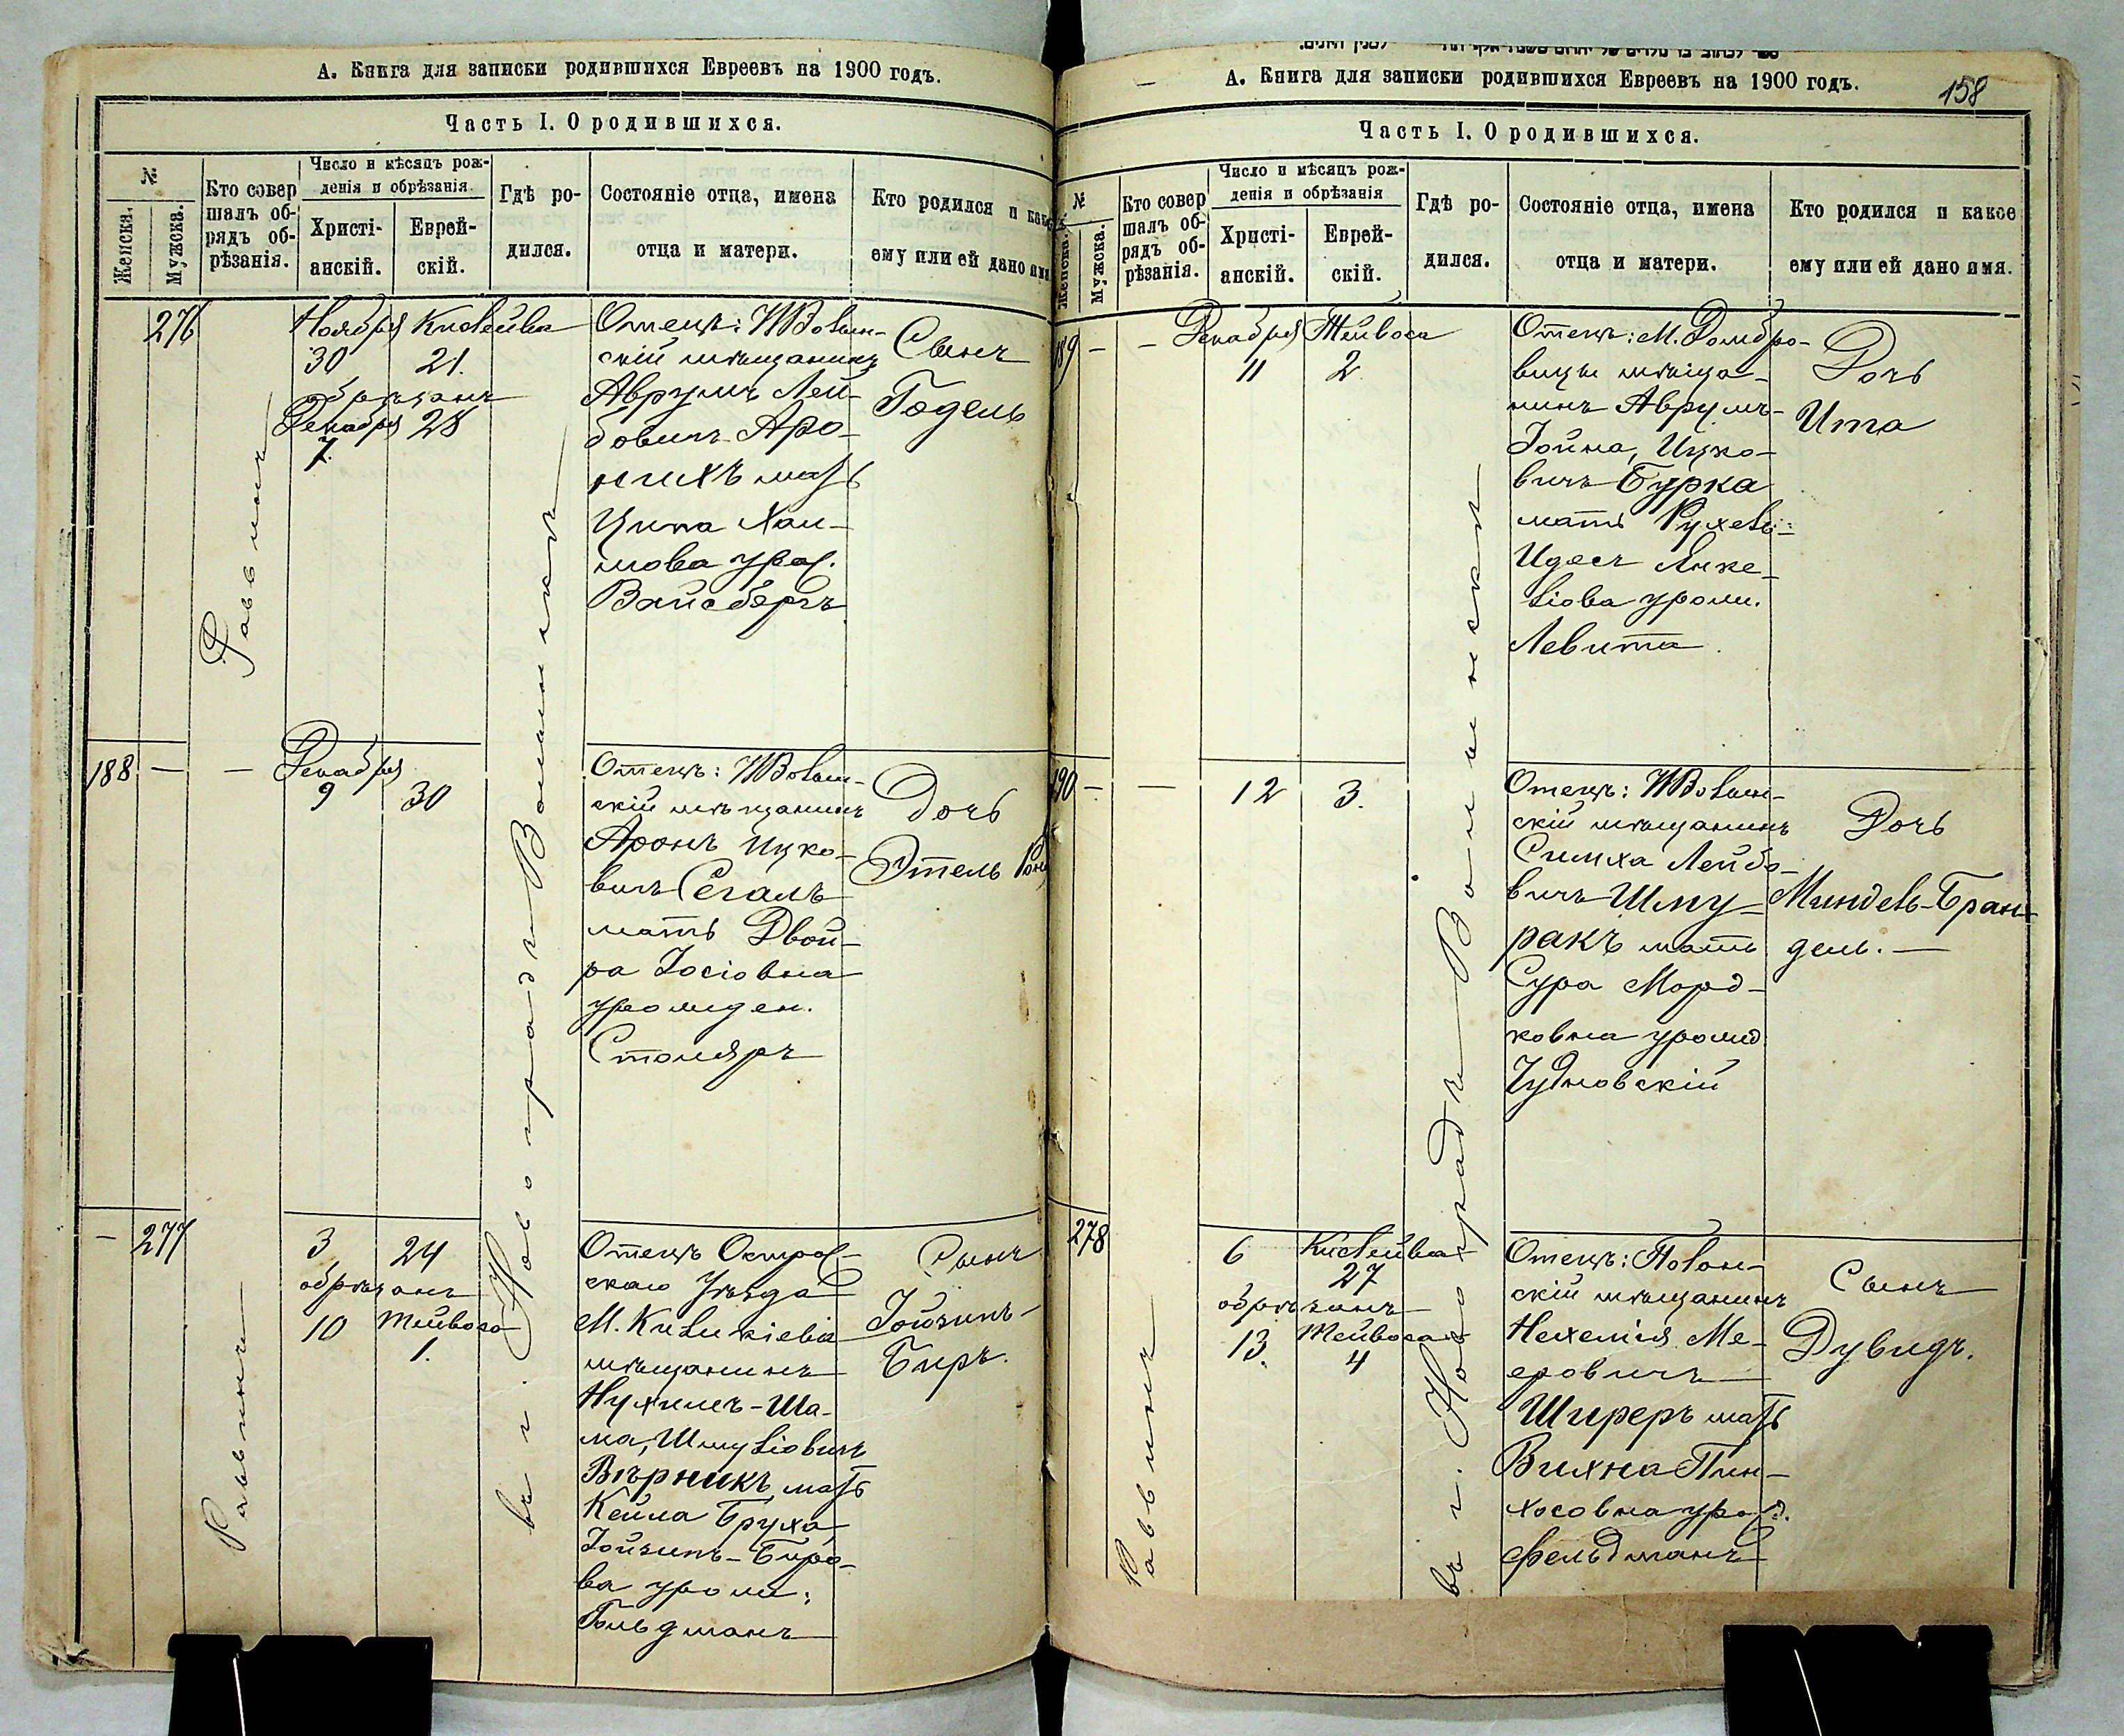 А. Книга для записки родившихся Евреевъ на 1900 годъ.
Часть I. О родившихся.
№
Женска.
Мужска.
Кто совер
шалъ об-
рядъ об-
рѣзанія.
Число и мѣсяцъ рож-
денія и обрѣзанія.
Христі-
анскій.
Еврей-
скій.
Гдѣ ро-
дился.
Состояніе отца, имена
отца и матери.
Кто родился и какое
ему или ей дано имя
276
Раввинъ
Ноября
30
обрѣзанъ
Декабря
7.
Кислейва
21.
28
въ г. Новоградъ Волынскъ
Отецъ: НВолын-
скій мѣщанинъ
Аврумъ Лей-
бовичъ Аро-
нихъ мать
Ципа Хаи-
мова урож.
Вайсбергъ
Сынъ
Годель
188 — —
Декабря
9
30
Отецъ: НВолын-
скій мѣщанинъ
Аронъ Ицко-
вичъ Сегалъ
мать Двой-
ра Іосіовна
урожден.
Столяръ
Дочь
Этель
— 277
Раввинъ
3
обрѣзанъ
10
24
Тейвоса
1.
Отецъ Острож-
скаго Уѣзда
М.
мѣщанинъ
Нухимъ-Ша-
ма, Шмуліовичъ
Вѣрникъ, мать
Кейла Бруха
Іойзипъ-Биро-
ва урожд.
Гольдманъ
Сынъ
Іойзипъ-
Биръ.
158
А. Книга для записки родившихся Евреевъ на 1900 годъ.
Часть I. О родившихся.
№
Женска.
Мужска.
Кто совер
шалъ об-
рядъ об-
рѣзанія.
Число и мѣсяцъ рож-
денія и обрѣзанія
Христі-
анскій.
Еврей-
скій.
Гдѣ ро-
дился.
Состояніе отца, имена
отца и матери.
Кто родился и какое
ему или ей дано имя.
189 — —
Декабря
11
Тейвоса
2
въ г. Новоградъ Волынскъ
Отецъ: М. Домбро-
вицы мѣща-
нинъ Аврумъ-
Іойна, Ицко-
вичъ Бурка
мать Рухель-
Идесъ Янке-
ліова урожд.
Левита.
Дочь
Ита
190 — —
12
3.
Отецъ: НВолын-
скій мѣщанинъ
Симха Лейбо-
вичъ Шму-
ракъ мать
Сура Морд-
ковна урожд
Чудновскій
Дочь
Миндель-Бран-
дель. —
278
Раввинъ
6
обрѣзанъ
13.
Кислейва
27
Тейвоса
4
Отецъ: Полон-
скій мѣщанинъ
Нехемія Ме-
еровичъ
Ширеръ мать
Вихна Пин-
хосовна урожд.
Фельдманъ
Сынъ
Дувидъ.